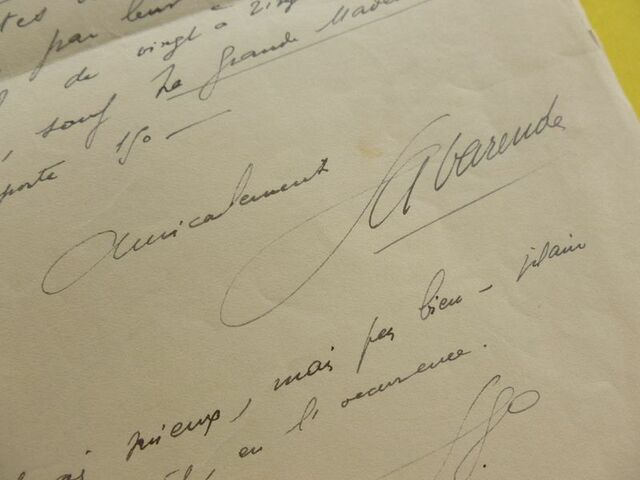 par leur
de vingt à vingt
sauf La Grande Made
porte 150 —
Amicalement
La Varende
mieux, mais pas bien —
en l'occurrence.